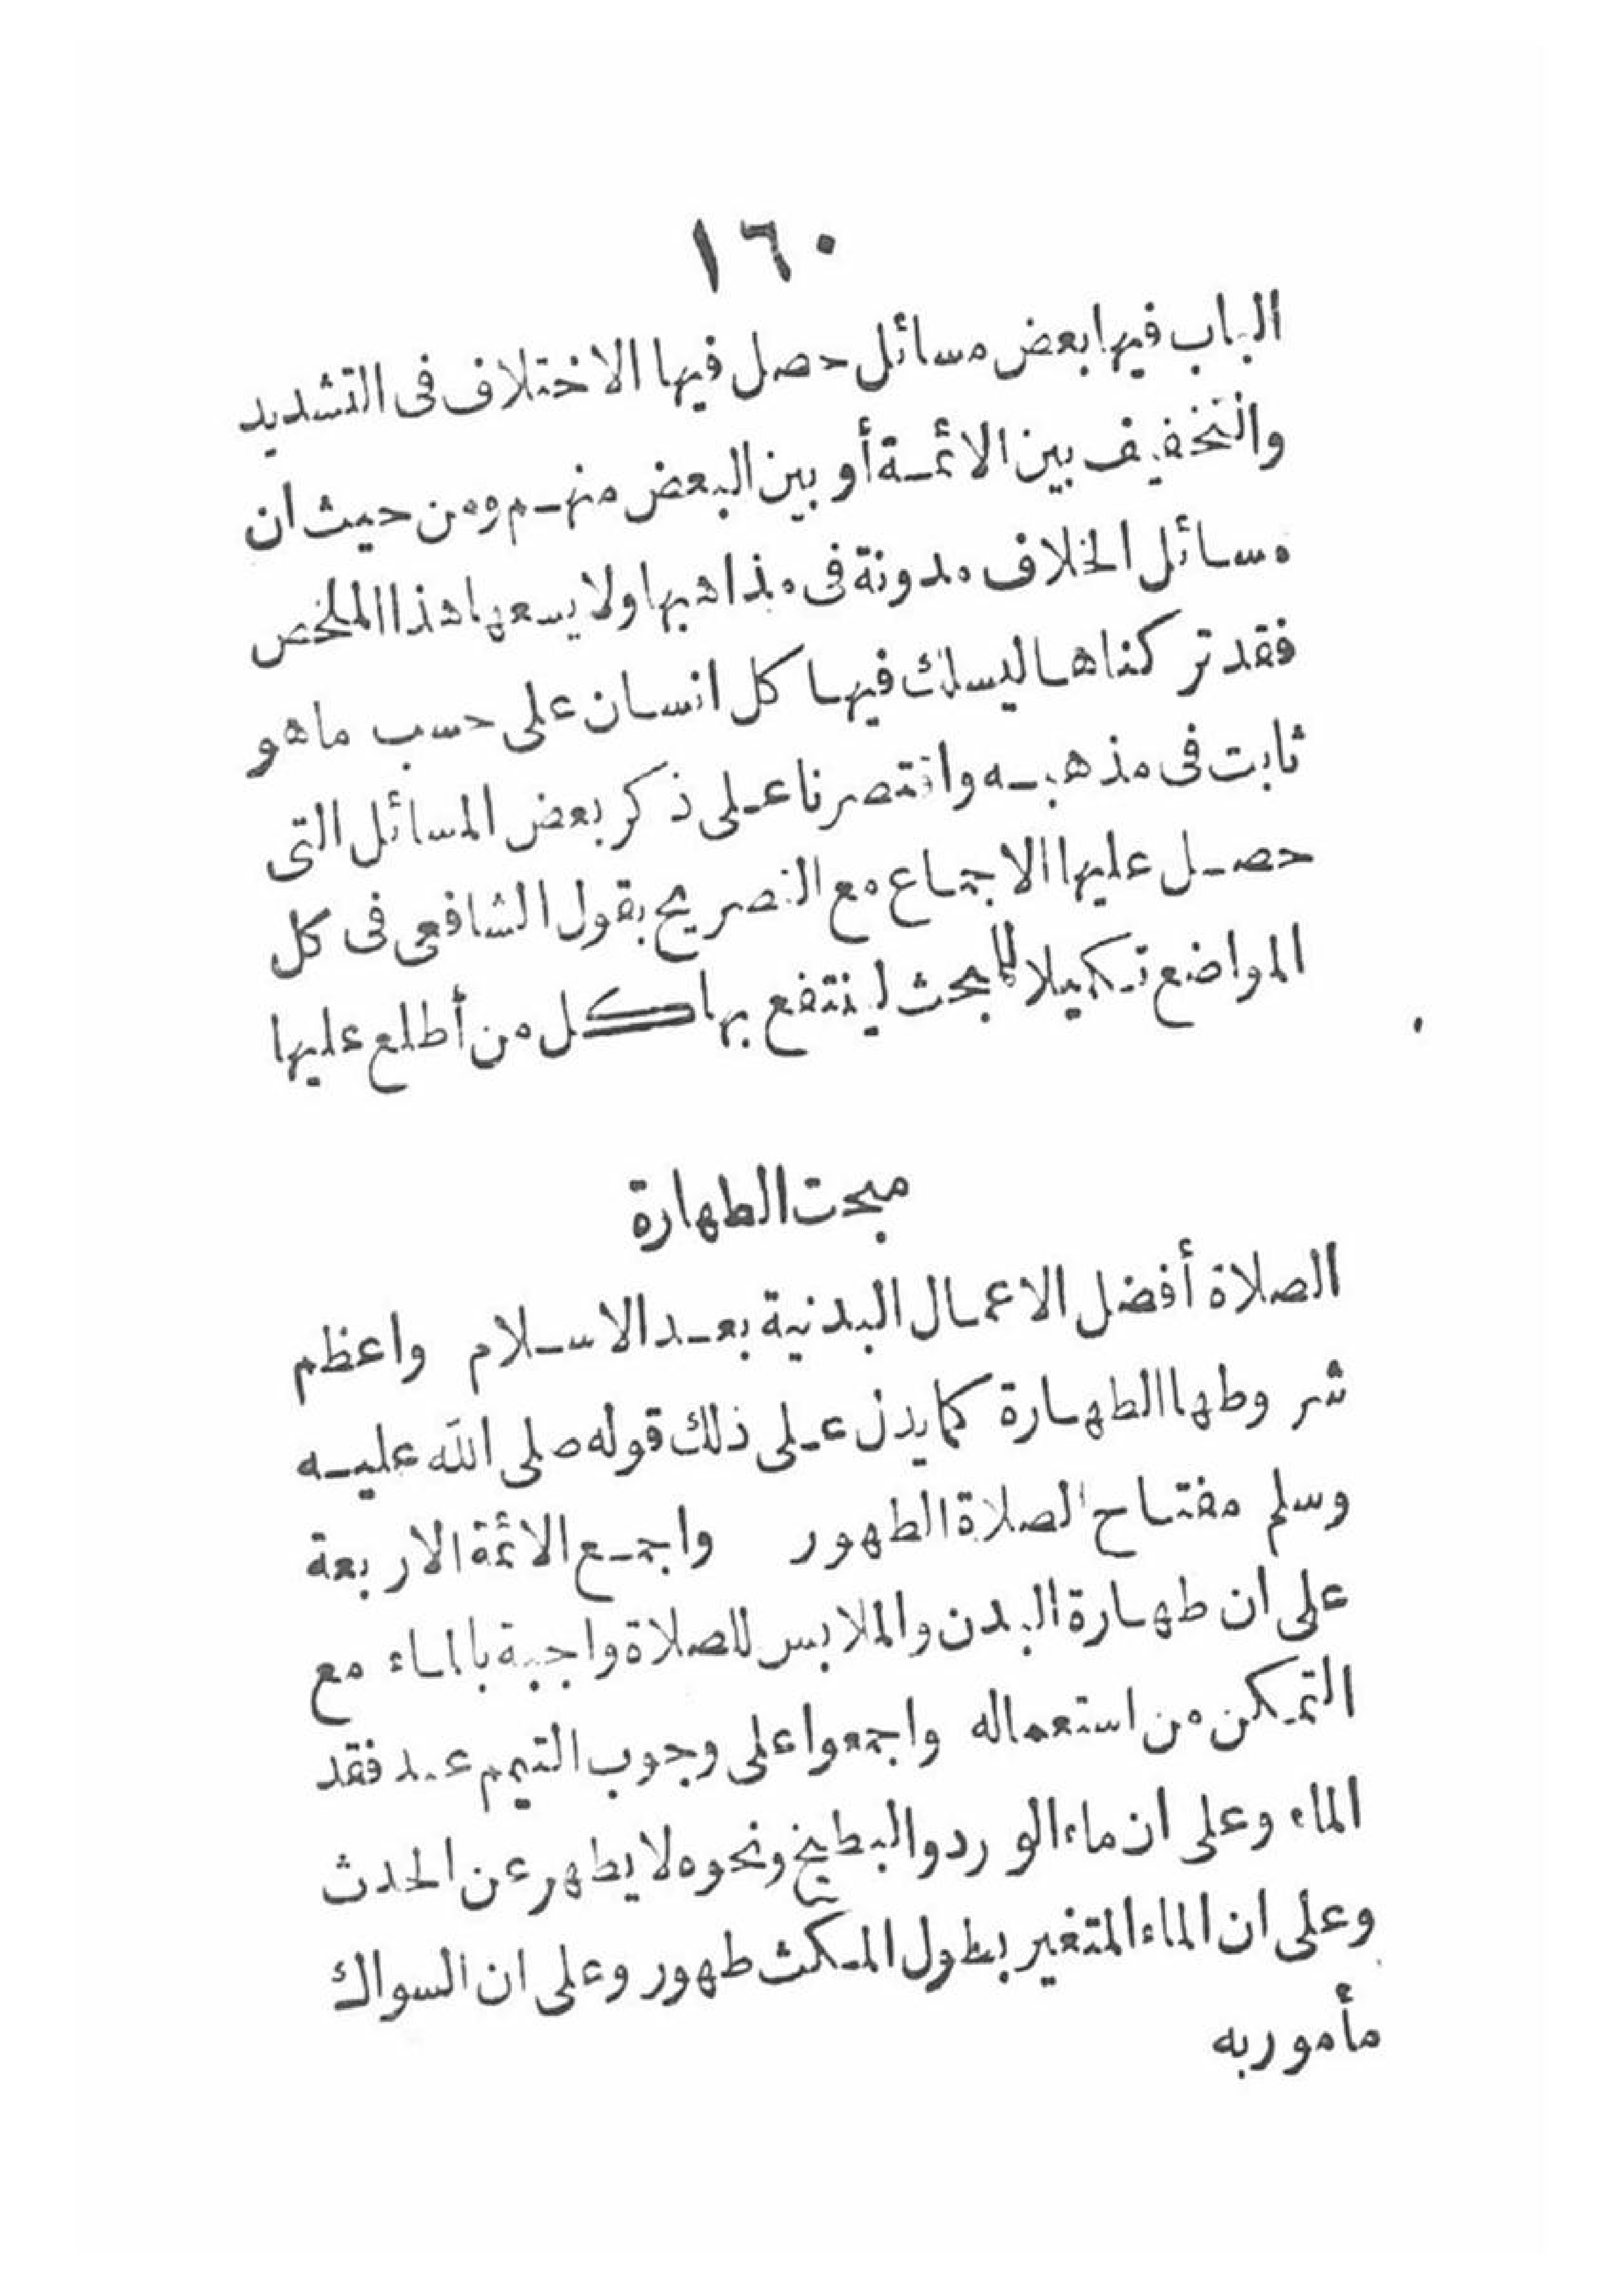 ١٦٠
الباب فيها بعض مسائل حصل فيها الاختلاف فى التشديد
والتخفيف بين الائمة أو بين البعض منهم ومن حيث ان
مسائل الخلاف مدونة فى مذاهبها ولا يسعها هذا الملخص
فقد تركناها ليسلك فيها كل انسان على حسب ما هو
ثابت فى مذهبه واقتصرنا على ذكر بعض المسائل التى
حصل عليها الاجماع مع التصريح بقول الشافعى فى كل
المواضع تكميلا للبحث لينتفع بها كل من أطلع عليها
مبحث الطهارة
الصلاة أفضل الاعمال البدنية بعد الاسلام واعظم
شروطها الطهارة كما يدل على ذلك قوله صلى الله عليه
وسلم مفتاح الصلاة الطهور واجمع الائمة الاربعة
على ان طهارة البدن والملابس للصلاة واجبة بالماء مع
التمكن من استعماله واجمعوا على وجوب التيمم عند فقد
الماء وعلى ان ماء الورد والبطيخ ونحوه لا يطهر عن الحدث
وعلى ان الماء المتغير بطول المكث طهور وعلى ان السواك
مأمور به